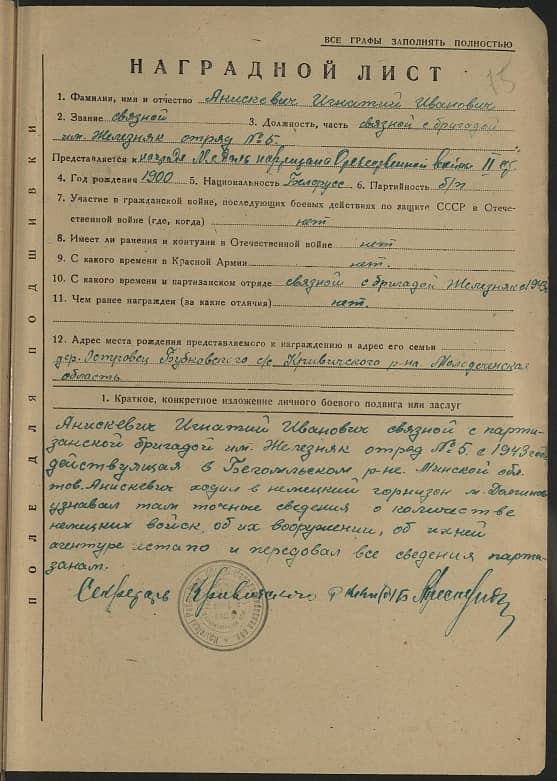 ВСЕ ГРАФЫ ЗАПОЛНЯТЬ ПОЛНОСТЬЮ
75
НАГРАДНОЙ ЛИСТ
1. Фамилия, имя и отчество Анискевич Игнатий Иванович
2. Звание связной 3. Должность, часть связной с бригадой
им. Железняк отряд № 5.
Представляется к награде Медаль партизана Отечественной войны II ст.
4. Год рождения 1900 5. Национальность Белорусс 6. Партийность б/п
7. Участие в гражданской войне, последующих боевых действиях по защите СССР в Отече-
ственной войне (где, когда) нет
8. Имеет ли ранения и контузии в Отечественной войне нет
9. С какого времени в Красной Армии нет.
10. С какого времени в партизанском отряде связной с бригадой Железняк с 1943
11. Чем ранее награжден (за какие отличия) нет.
12. Адрес места рождения представляемого к награждению и адрес его семьи
дер. Островец Бубновского с/с Кривичского р-на Молодеченская
область
1. Краткое, конкретное изложение личного боевого подвига или заслуг
Анискевич Игнатий Иванович связной с парти-
занской бригадой им. Железняк отряд № 5 с 1943 года
действующая в Бегомльском р-не. Минской обл.
тов. Анискевич ходил в немецкий горнизон м. Долгиново
узнавал там точные сведения о количестве
немецких войск, об их вооружении, об ихней
агентуре гестапо и передовал все сведения парти-
занам.
Секретарь Кривичского
ПОЛЕ ДЛЯ ПОДШИВКИ